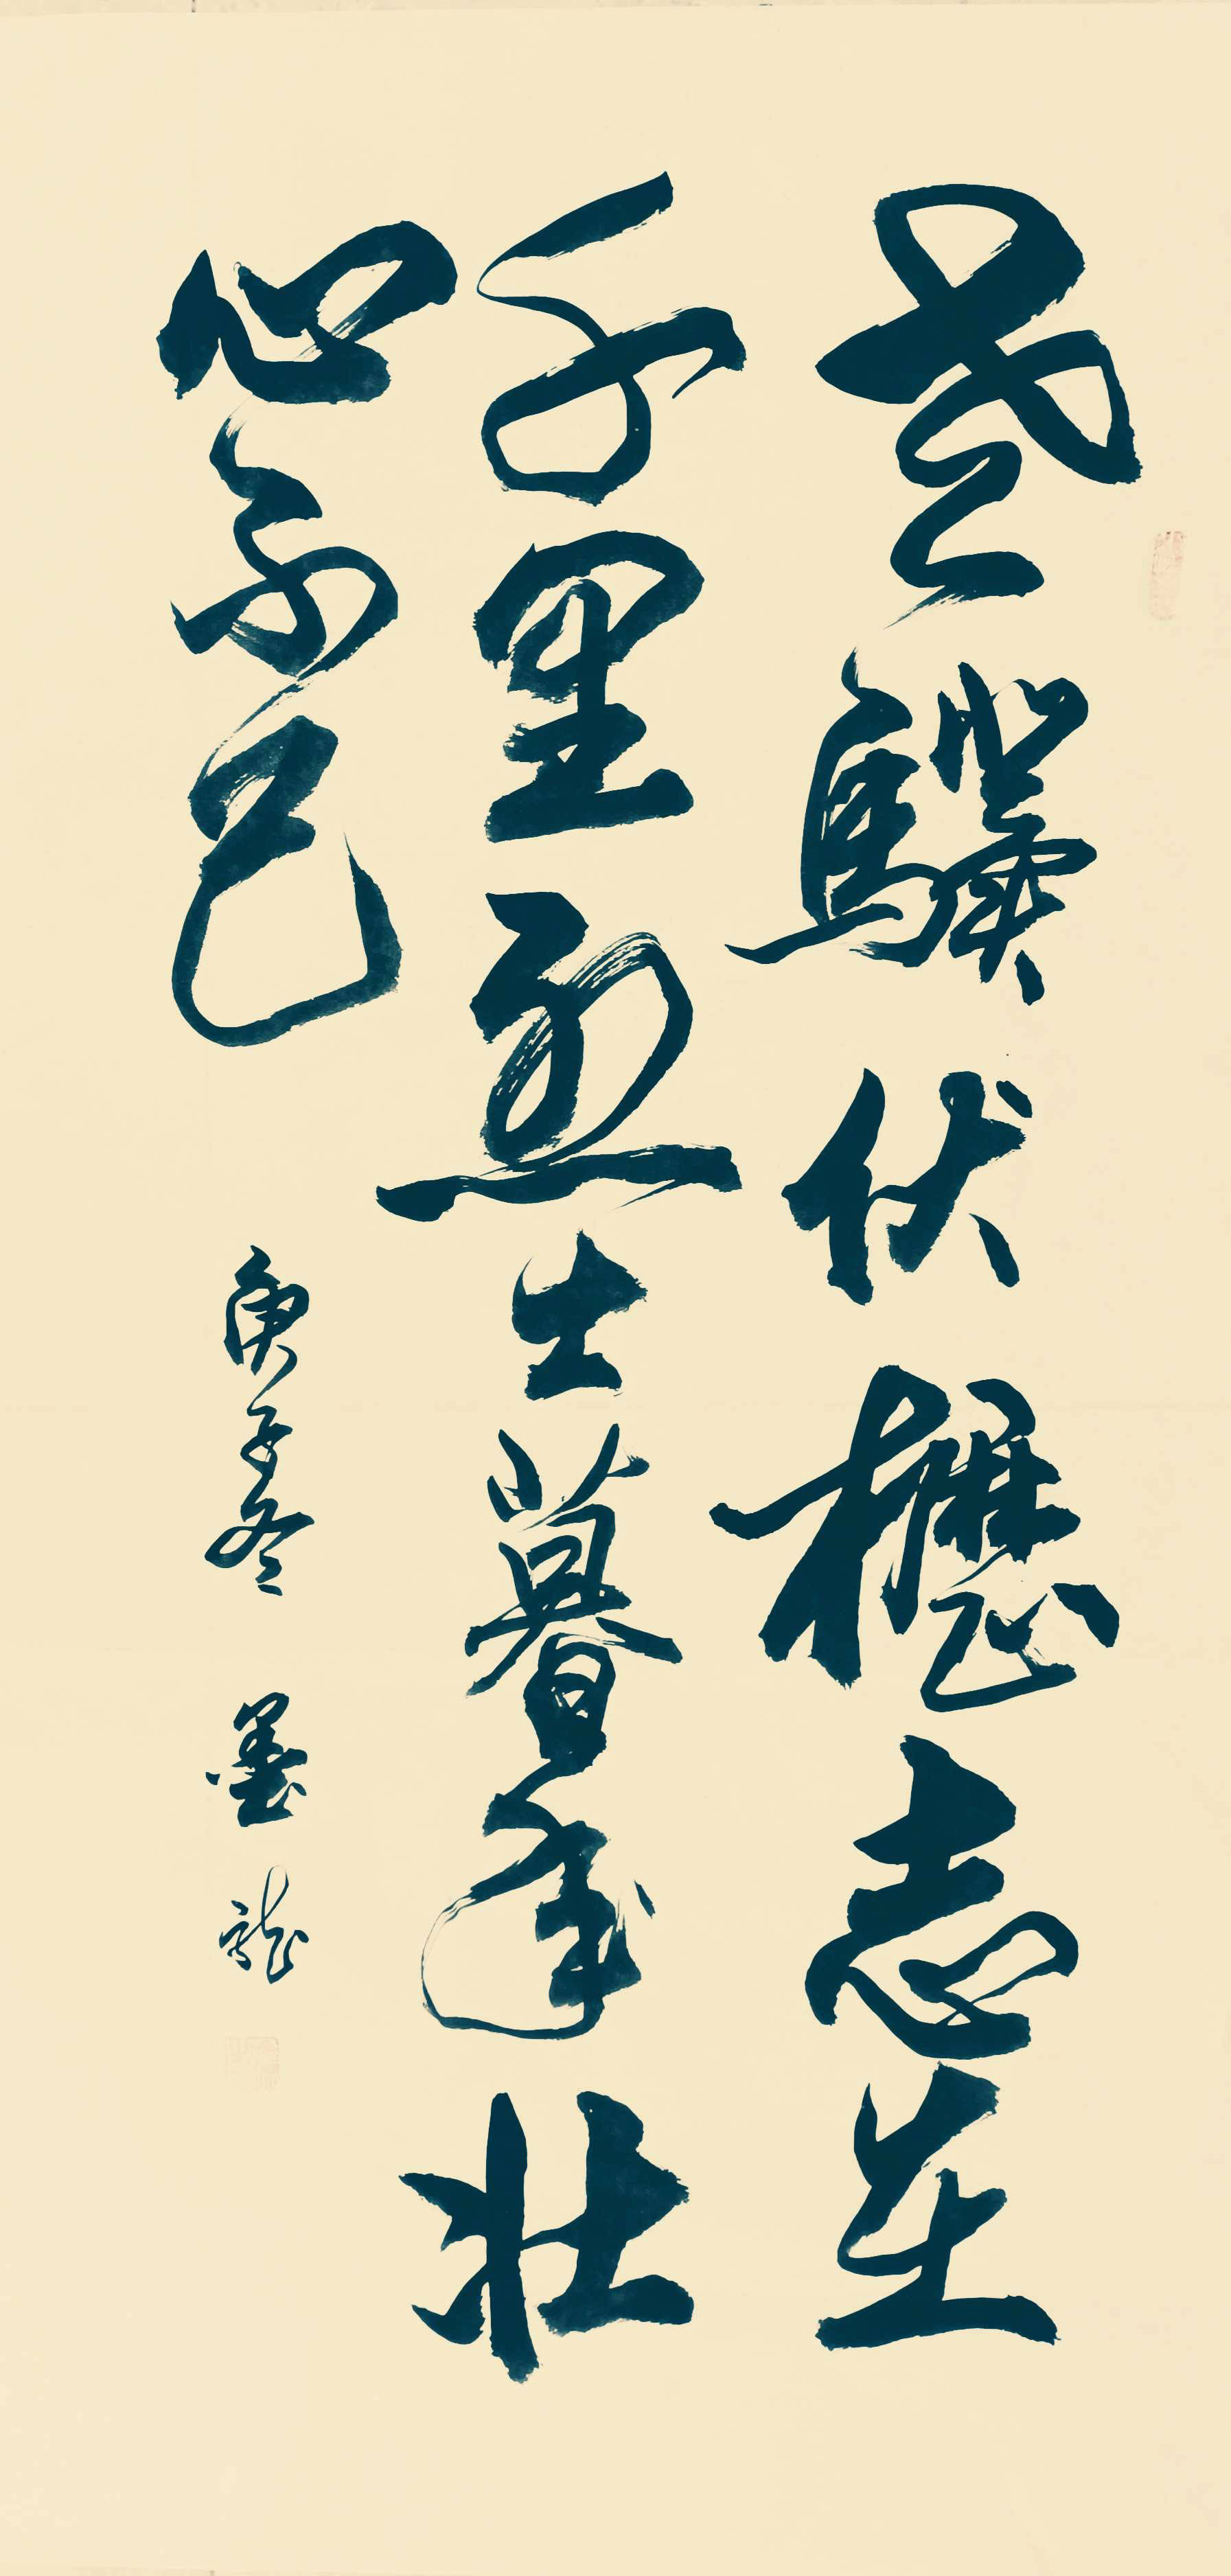 老驥伏櫪志在
千里烈士暮年壯
心不已
庚子冬 墨龍